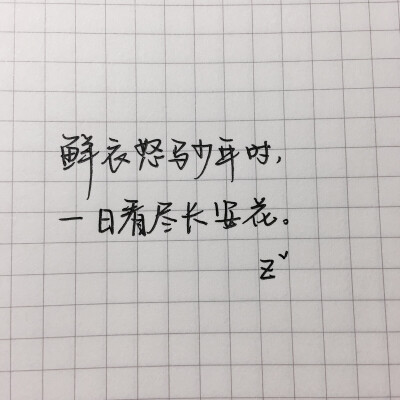 鲜衣怒马少年时，
一日看尽长安花。
Z